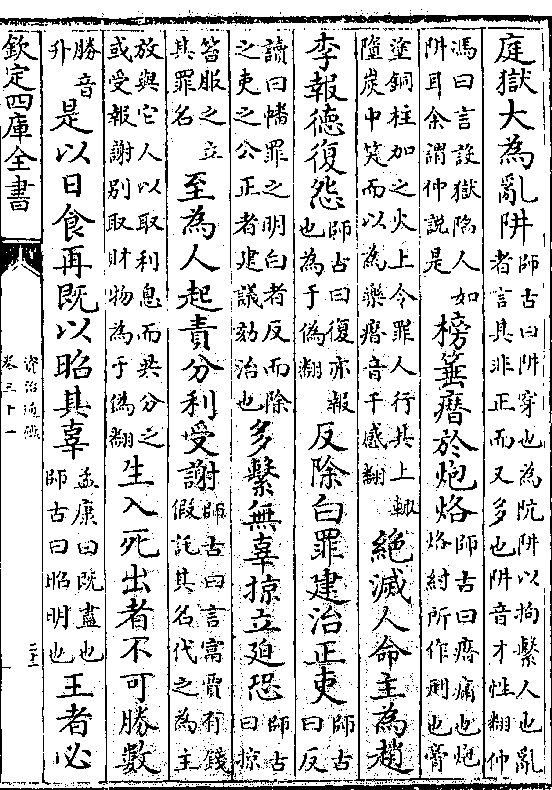 庭獄大為亂阱師古曰阱穿也為阬阱以拘繫人也亂者言其非正而又多也阱音才性翻仲
馮曰言設獄陷人如阱耳余謂仲説是榜箠㿊於炮烙師古曰㿊痛也炮烙紂所作刑也膏
塗銅柱加之火上令罪人行其上輙墮炭中笑而以為樂㿊音千感翻絶滅人命主為趙
李報德復怨師古曰復亦報也為于偽翻反除白罪建治正吏師古曰反
讀曰幡罪之明白者反而除之吏之公正者建議劾治也多繫無辜掠立廹恐師古曰掠
笞服之立其罪名至為人起責分利受謝師古曰言富賈有錢假託其名代之為主
放與它人以取利息而共分之或受報謝别取財物為于偽翻生入死出者不可勝數
勝音升是以日食再既以昭其辜孟康曰既盡也師古曰昭明也王者必
欽定四庫全書
資治通鑑
卷三十一